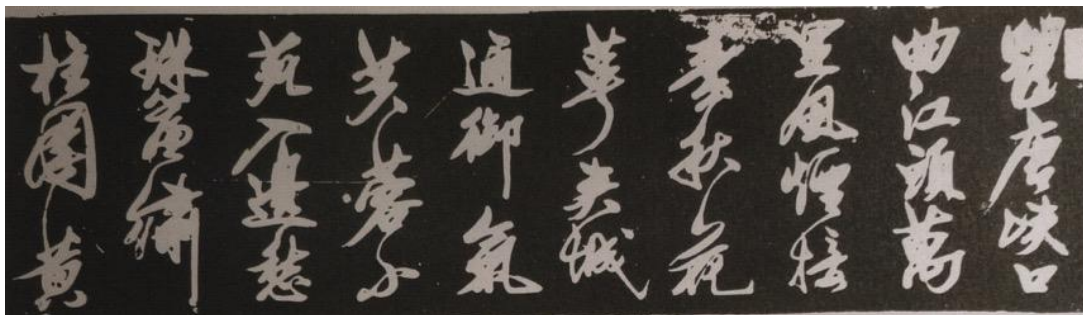 瞿唐峽口
曲江頭萬
里風煙接
素秋花
萼夾城
通御氣
芙蓉小
苑入邊愁
珠簾繡
柱圍黃